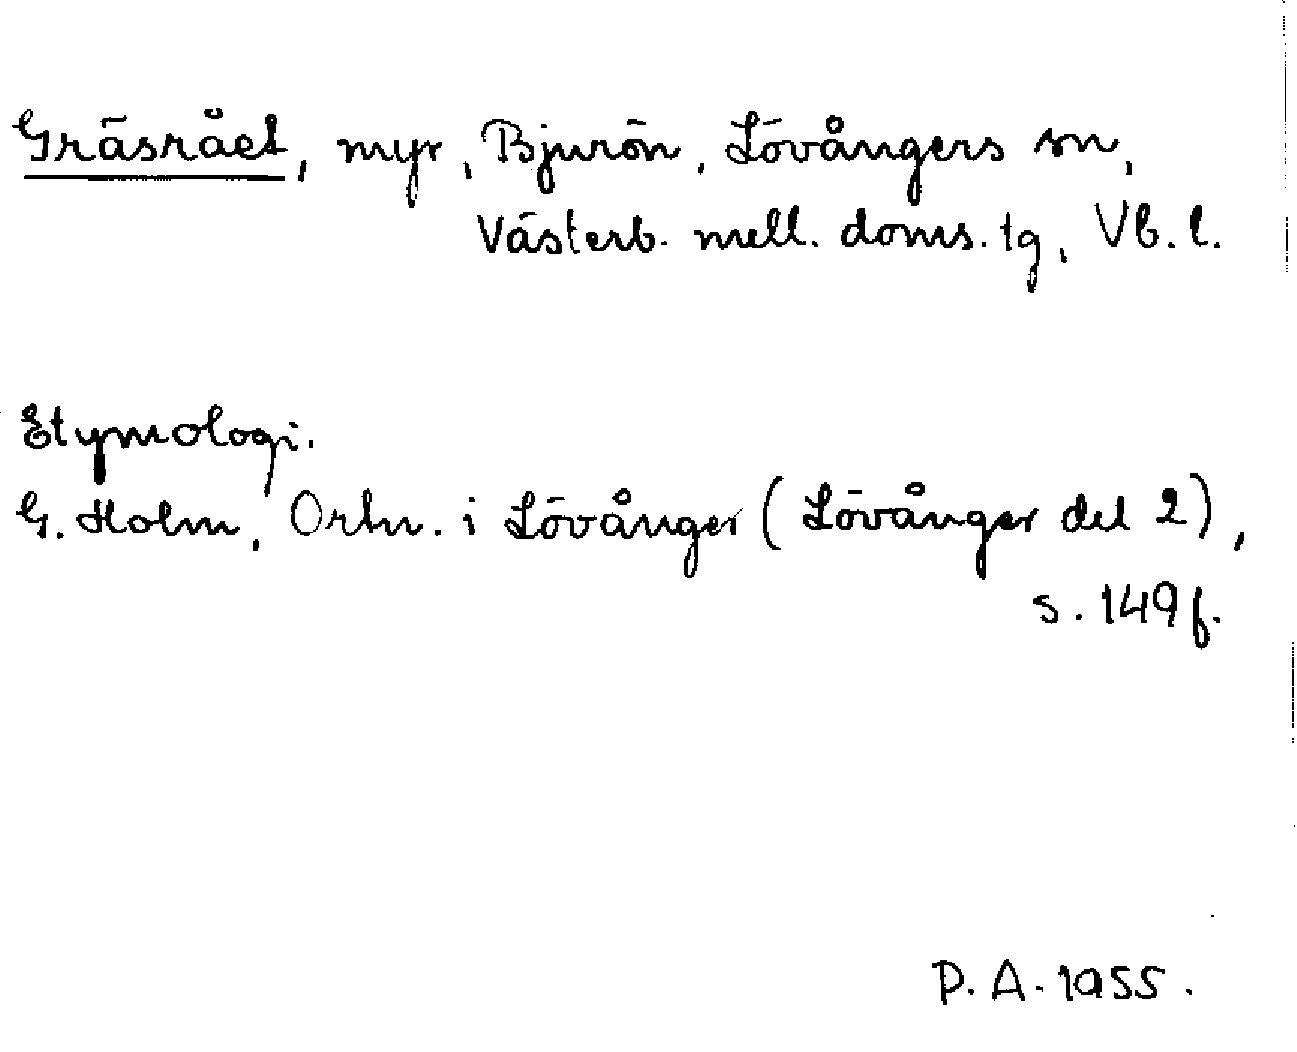 Gräsrået, myr, Bjurön, Lövångers sn,
Västerb. mell. doms. tg, Vb. l.
Etymologi.
G. Holm, Ortn. i Lövånger (Lövånger del 2),
s. 149 f.
P. A. 1955.